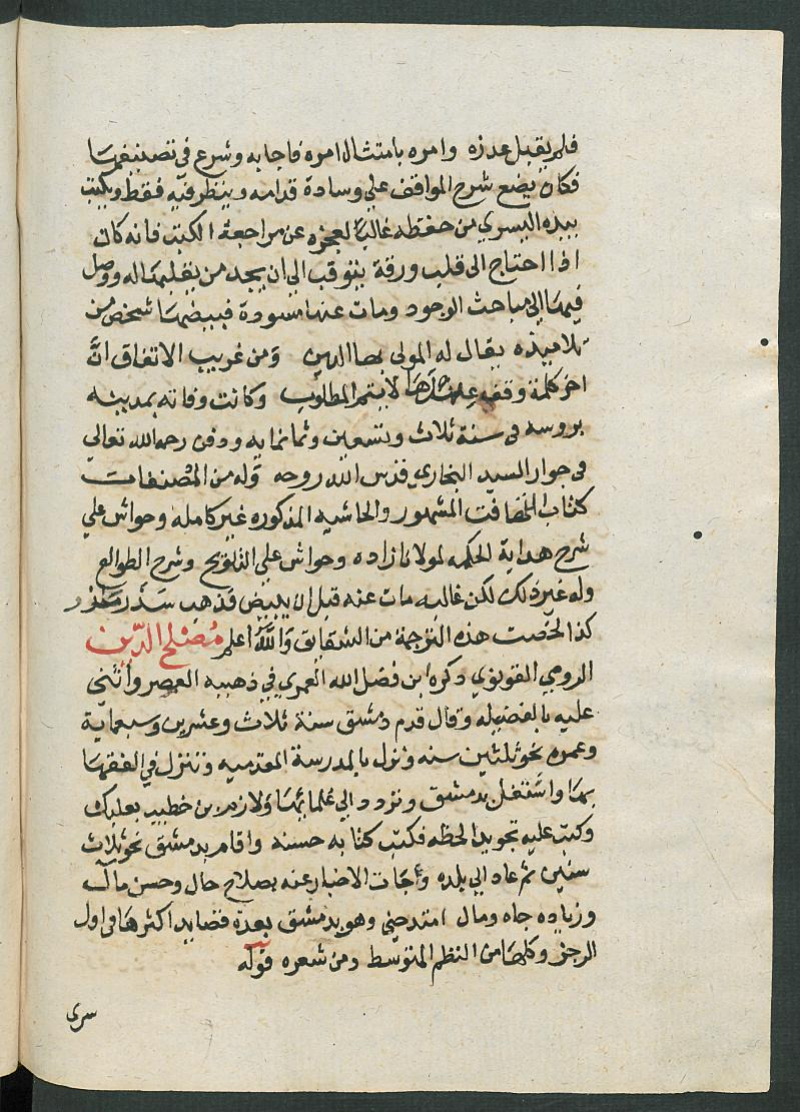 فلم يقبل عدزه وامره بامتثال امره فاجابه وشرع في تصنيفها
فكان يضع شرح المواقف علي وسادة قدامه وينظر فيه فقط ويكتب
بيده اليسري من حفظه غالبا لعجزه عن مراجعة الكتب فانه كان
اذا احتاج الى قلب ورقة يتوقب الي ان يجد من يقلبها له ووصل
فيها الي مباحث الوجود ومات عنها مسودة فبيضها شخص من
تلاميذه يقال له المولى بها الدين ومن غريب الاتفاق انّ
اخر كلمة وقف عليها لا يتم المطلوب وكانت وفاته بمدينه
بروسه في سنة ثلاث وتسعين وثمانمايه ودفن رحمه الله تعالي
في جوار السيد البخاري قدس الله روحه وله من المصنفات
كتاب التهافت المشهور والحاشيه المذكوره غير كامله وحواش علي
شرح هداية الحكمه لمولانا زاده وحواش علي التلويح وشرح الطوالع
وله غير ذلك لكن غالبه مات عنه قبل ان يبيض فذهب شذر مذر
كذا لخصت هذه الترجمة من الشقايق والله اعلم مصلح الدين
الرومي القونوي ذكره ابن فضل الله العمري في ذهبيه العصر واثنى
عليه بالفضيله وقال قدم دمشق سنة ثلاث وعشرين وسبعماية
وعمره نحو ثلثين سنه ونزل بالمدرسة المقدميه وتنزل في الفقها
بها واشتغل بدمشق وتردد الي علمائها ولازم بن خطيب بعلبك
وكتب عليه تجويد الخطه فكتب كتابه حسنه واقام بدمشق نحو ثلاث
سنين ثم عاد الي بلده وجات الاخبار عنه بصلاح حال وحسن مآل
وزياده جاه ومال امتدحني وهو بدمشق بعدة قصايد اكثرها في اول
الرجز وكلها من النظم المتوسط ومن شعره قوله
سرى